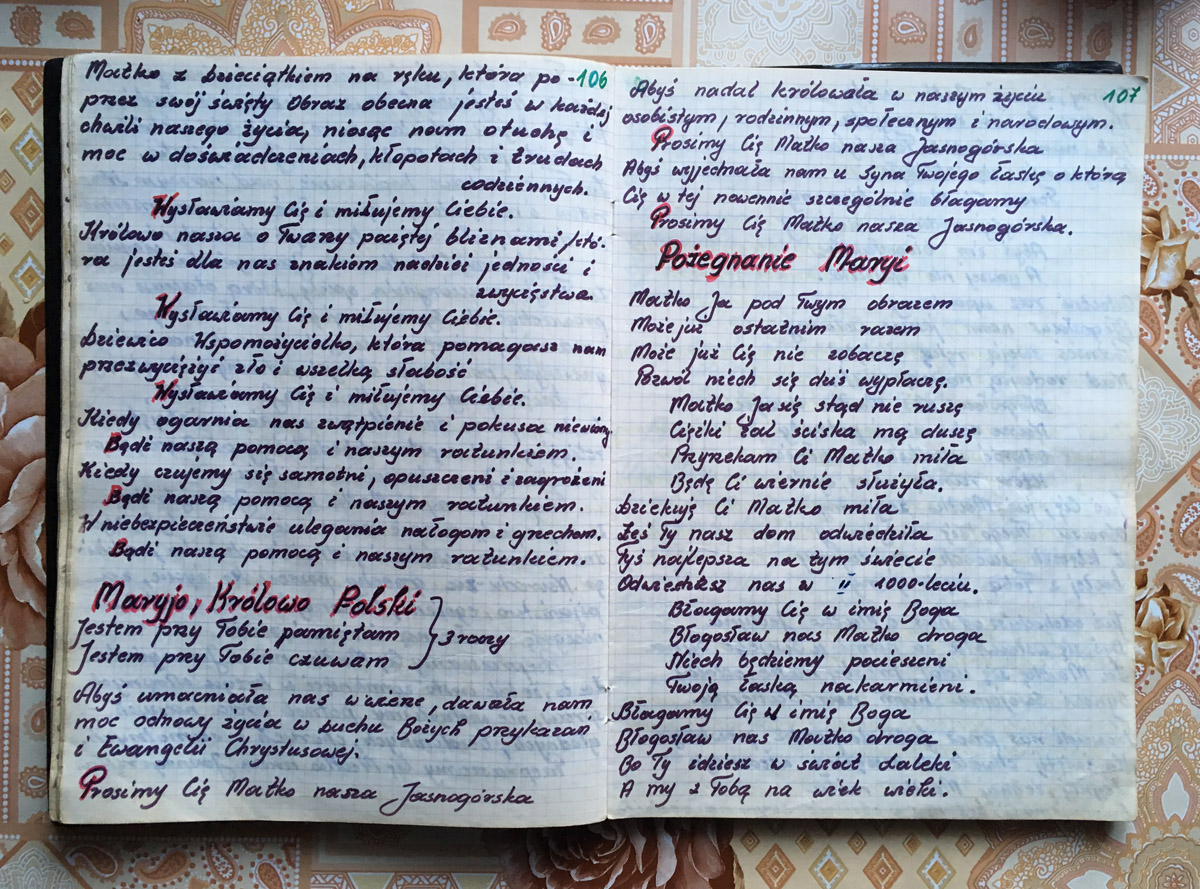 106
Matko z Dzieciątkiem na ręku, która po-
przez swój święty Obraz obecna jesteś w każdej
chwili naszego życia, niosąc nam otuchę i
moc w doświadczeniach, kłopotach i trudach
codziennych.
Wysławiamy Cię i miłujemy Ciebie.
Królowo nasza o Twarzy pociętej bliznami, któ-
ra jesteś dla nas znakiem nadziei jedności i
zwycięstwa.
Wysławiamy Cię i miłujemy Ciebie.
Dziewico Wspomożycielko, która pomagasz nam
przezwyciężyć zło i wszelką słabość
Wysławiamy Cię i miłujemy Ciebie.
Kiedy ogarnia nas zwątpienie i pokusa niewiary
Bądź naszą pomocą i naszym ratunkiem.
Kiedy czujemy się samotni, opuszczeni i zagrożeni
Bądź naszą pomocą i naszym ratunkiem.
W niebezpieczeństwie ulegania nałogom i grzechom.
Bądź naszą pomocą i naszym ratunkiem.
Maryjo, Królowo Polski
Jestem przy Tobie pamiętam
Jestem przy Tobie czuwam } 3 razy
Abyś umacniała nas w wierze, dawała nam
moc odnowy życia w Duchu Bożych przykazań
i Ewangelii Chrystusowej.
Prosimy Cię Matko nasza Jasnogórska
107
Abyś nadal królowała w naszym życiu
osobistym, rodzinnym, społecznym i narodowym.
Prosimy Cię Matko nasza Jasnogórska
Abyś wyjednała nam u Syna Twojego łaskę o którą
Cię w tej nowennie szczególnie błagamy
Prosimy Cię Matko nasza Jasnogórska.
Pożegnanie Maryi
Matko Ja pod Twym obrazem
Może już ostatnim razem
Może już Cię nie zobaczę
Pozwól niech się dziś wypłaczę.
Matko Ja się stąd nie ruszę
Ciężki żal ściska mą duszę
Przyrzekam Ci Matko miła
Będę Ci wiernie służyła.
Dziękuję Ci Matko miła
Żeś Ty nasz dom odwiedziła
Tyś najlepsza na tym świecie
Odwiedzisz nas w II 1000-leciu.
Błagamy Cię w imię Boga
Błogosław nas Matko droga
Niech będziemy pocieszeni
Twoją łaską nakarmieni.
Błagamy Cię w imię Boga
Błogosław nas Matko droga
Bo Ty idziesz w świat daleki
A my z Tobą na wiek wieki.